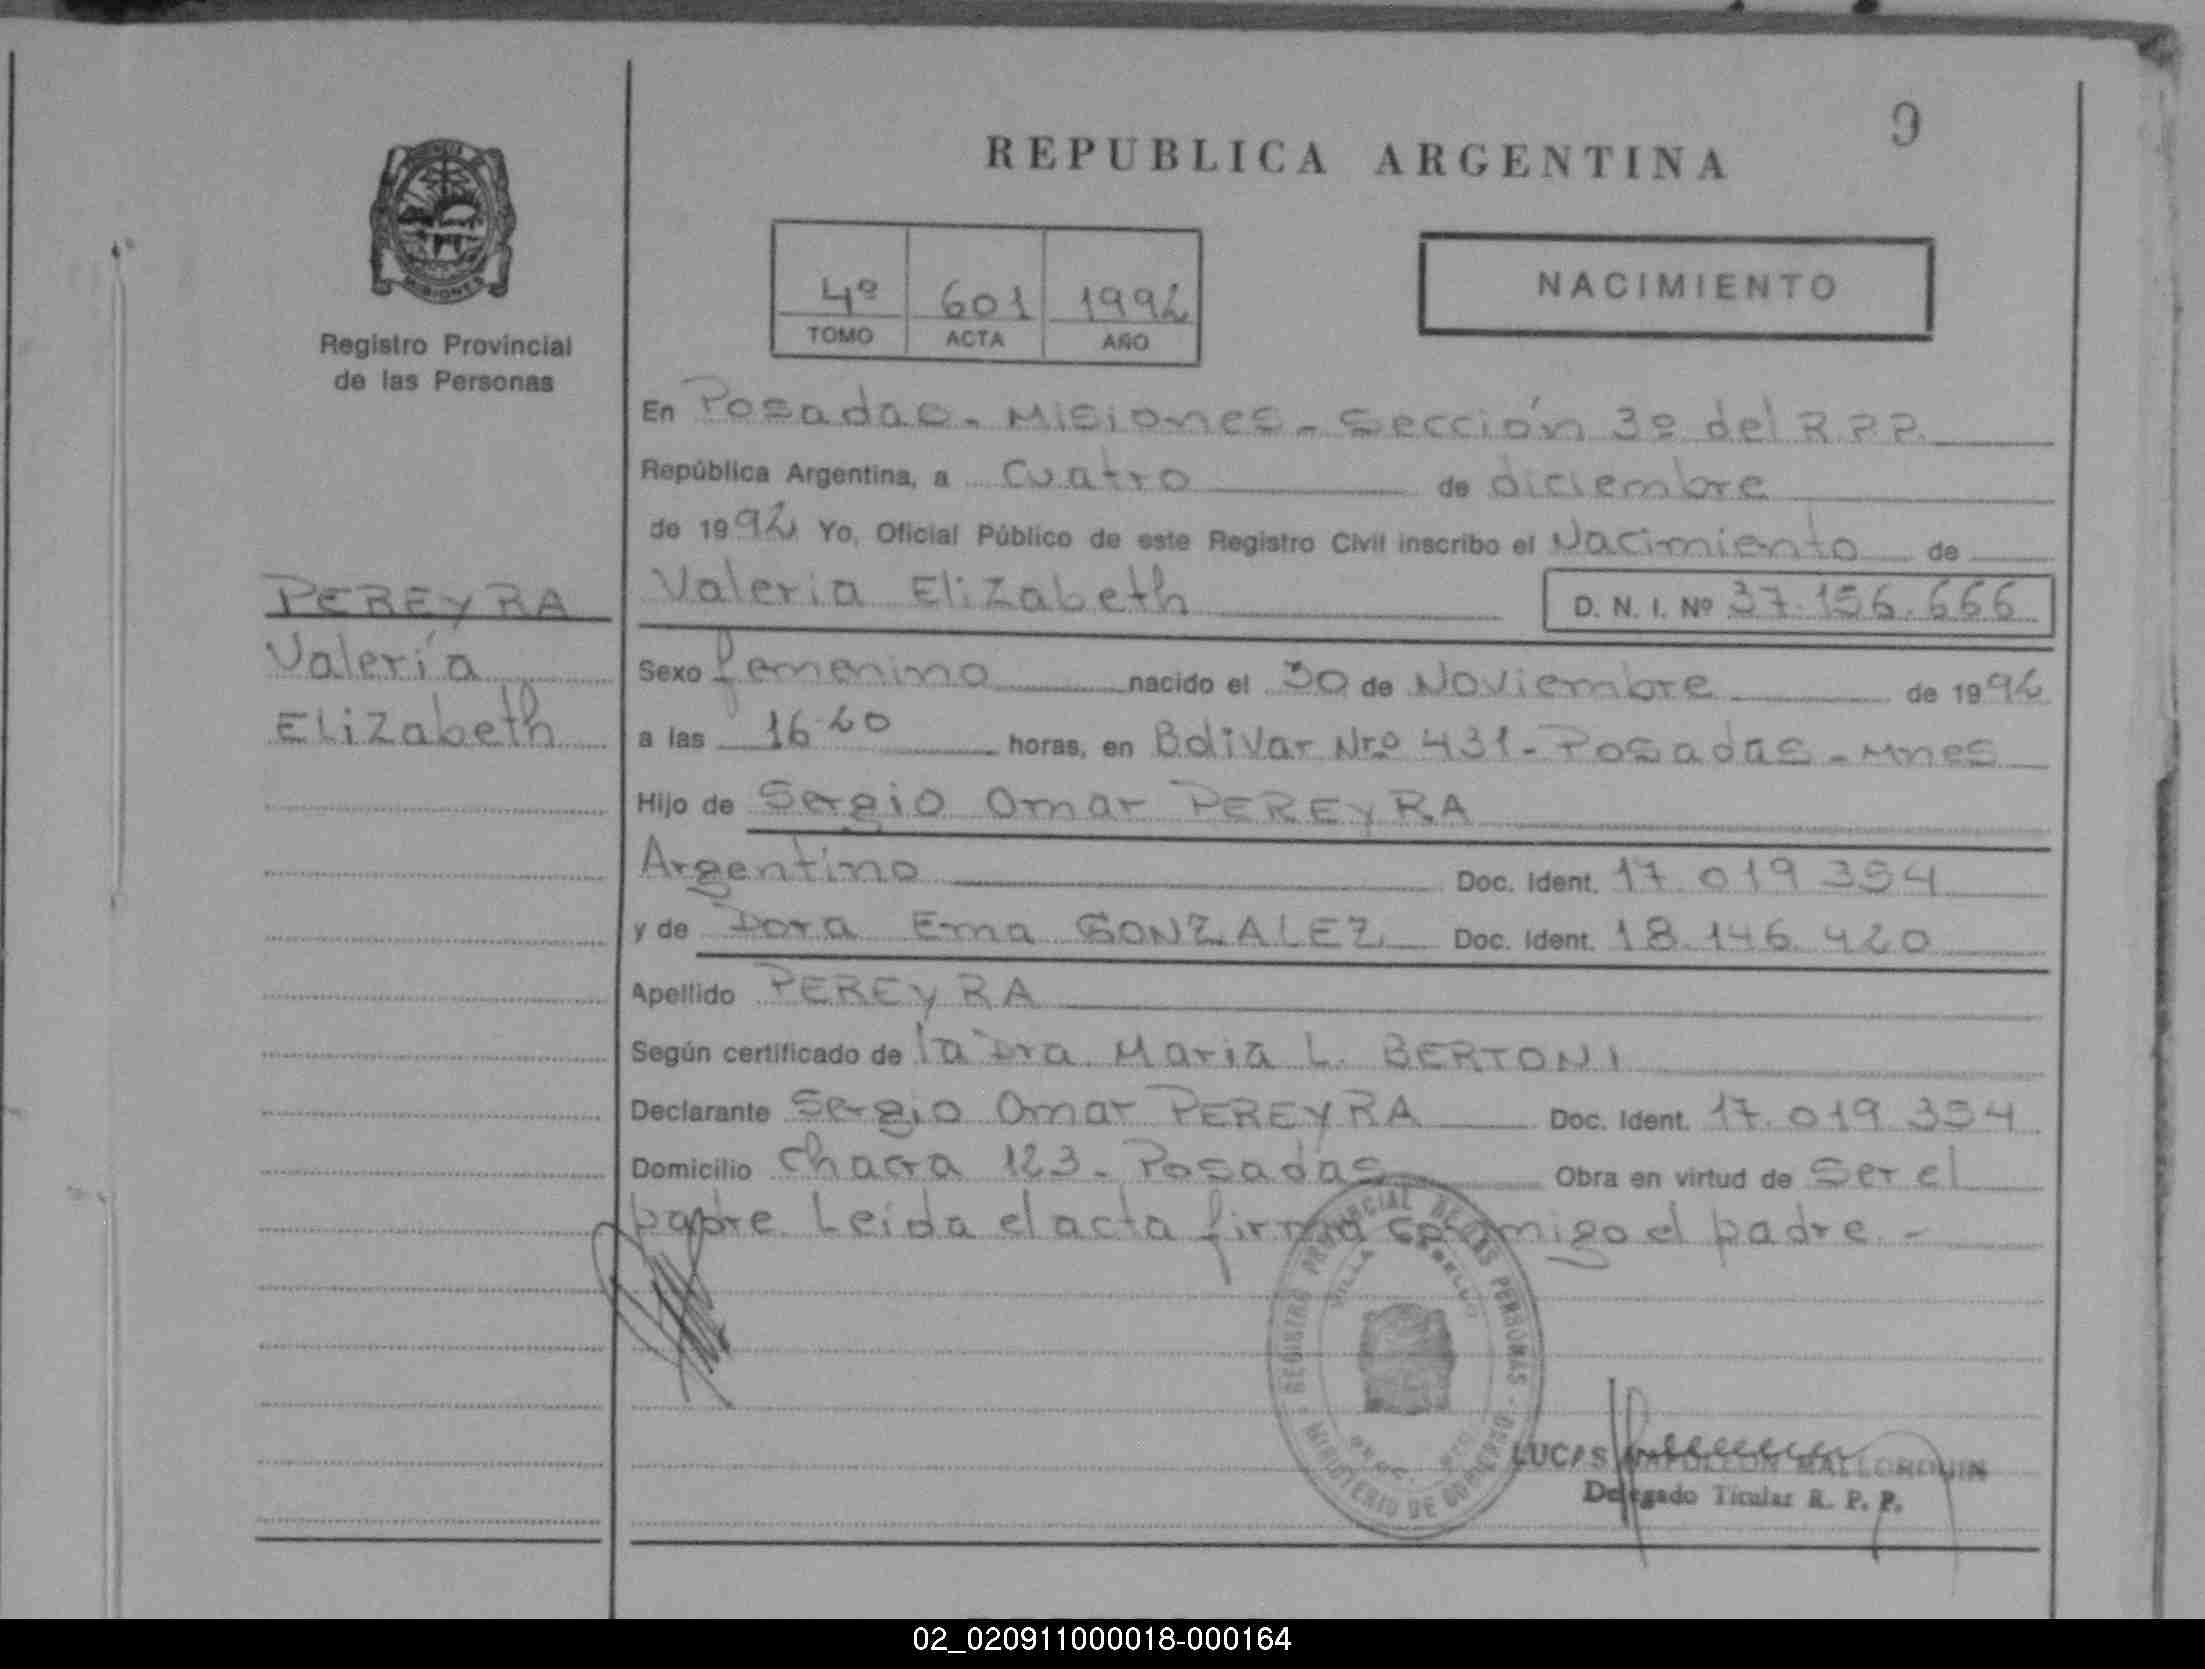 9
REPUBLICA ARGENTINA
MISIONES
Registro Provincial
de las Personas
4º 601 1992
TOMO ACTA AÑO
NACIMIENTO
En Posadas - Misiones - Sección 3º del R.P.P.
República Argentina, a cuatro de diciembre
de 1992 Yo, Oficial Público de este Registro Civil inscribo el Nacimiento de
PEREYRA
Valeria
Elizabeth
Valeria Elizabeth D. N. I. Nº 37.156.666
Sexo femenino nacido el 30 de Noviembre de 1992
a las 16 20 horas, en Bolivar Nro 431 - Posadas - Mnes
Hijo de Sergio Omar PEREYRA
Argentino Doc. Ident. 17.019.354
y de Dora Ema GONZALEZ Doc. Ident. 18.146.420
Apellido PEREYRA
Según certificado de la Dra Maria L. BERTONI
Declarante Sergio Omar PEREYRA Doc. Ident. 17.019.354
Domicilio Chacra 123 - Posadas Obra en virtud de Ser el
padre. Leida el acta firma conmigo el padre. -
REGISTRO PROVINCIAL DE LAS PERSONAS
VILLA
MINISTERIO DE GOBIERNO
LUCAS NAPOLEON MALLORQUIN
Delegado Titular R. P. P.
02_020911000018-000164